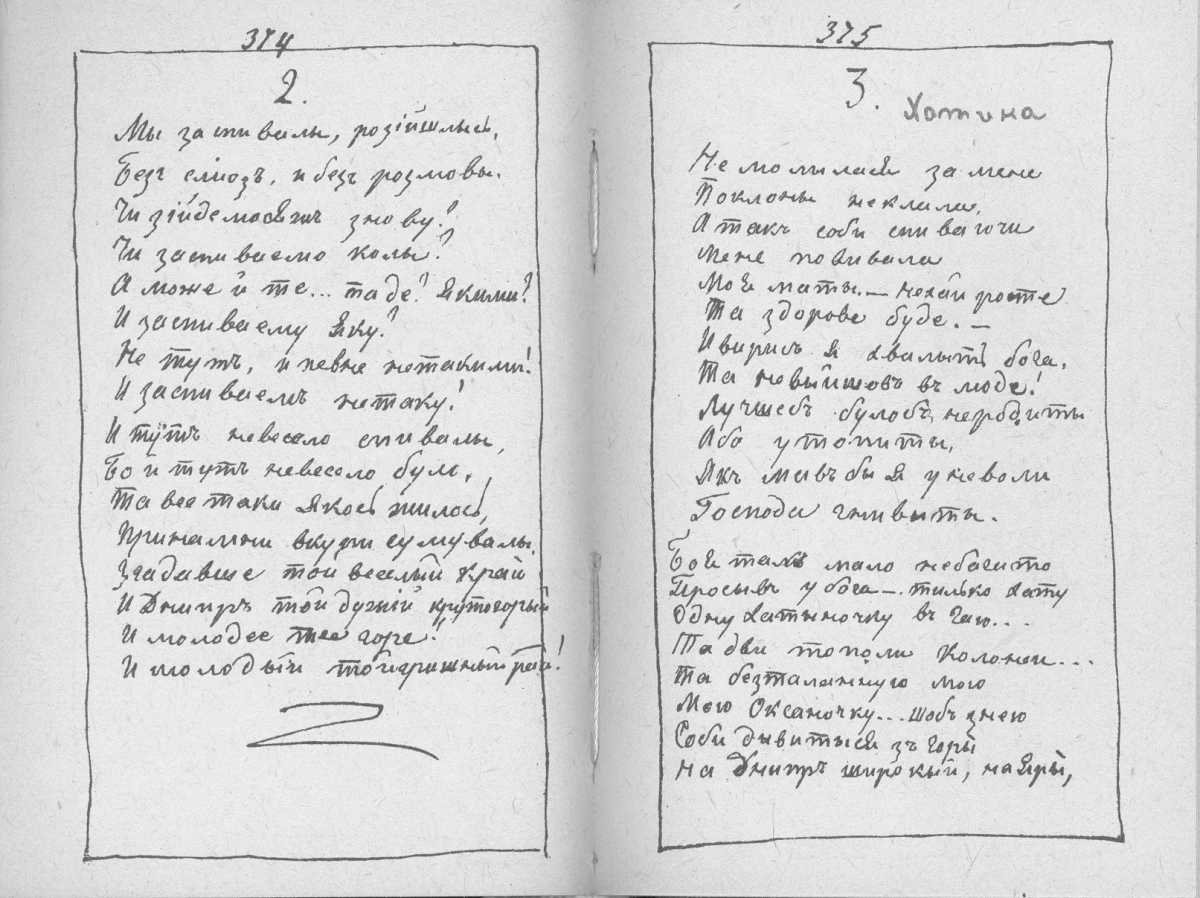 374
2.
Мы заспивалы, розійшлысь,
Безъ слiозъ, и безъ розмовы.
Чи зійдемосяжъ знову?
Чи заспиваемо колы?
А може й те... та де? Якими?
И заспиваему яку?
Не тутъ, и певне нетакими!
И заспиваемъ нетаку!
И тутъ невесело спивалы,
Бо й тутъ невесело булы,
Та все таки якось жилось,
Принаймни вкупи сумувалы.
Згадавше той веселый край
И Днипръ той дужій крутогорый
И молодее тее горе!
И молодый той гришный рай!
375
3.
Хатина
Не молилася за мене
Поклоны неклала,
А такъ соби спиваючи
Мене повивала
Моя маты. — Нехай росте
Та здорове буде. —
И вырисъ я хвалыть бога,
Та невыйшовъ въ люде!
Лучшебъ булобъ неродыты
Або утопиты,
Якъ мавъ бы я у неволи
Господа гнивыты.
Бо я такъ мало небагато
Просывъ у бога —. тилько хату
Одну хатыночку въ гаю...
Та дви тополи коло неи...
Та безталанную мою
Мою Оксаночку... шобъ знею
Соби дывитыся зъ горы
На Днипръ широкый, на яры,